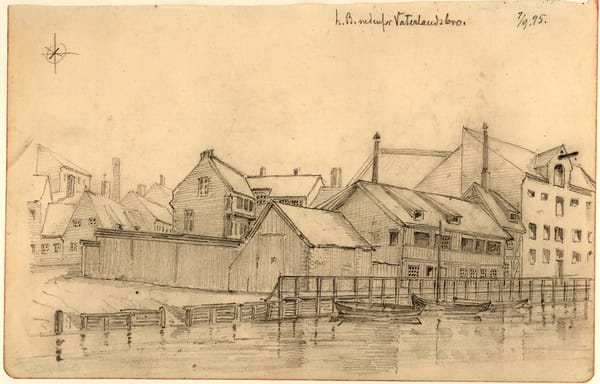 h. B. nedenfor Vaterlandsbro. 7/9.95.